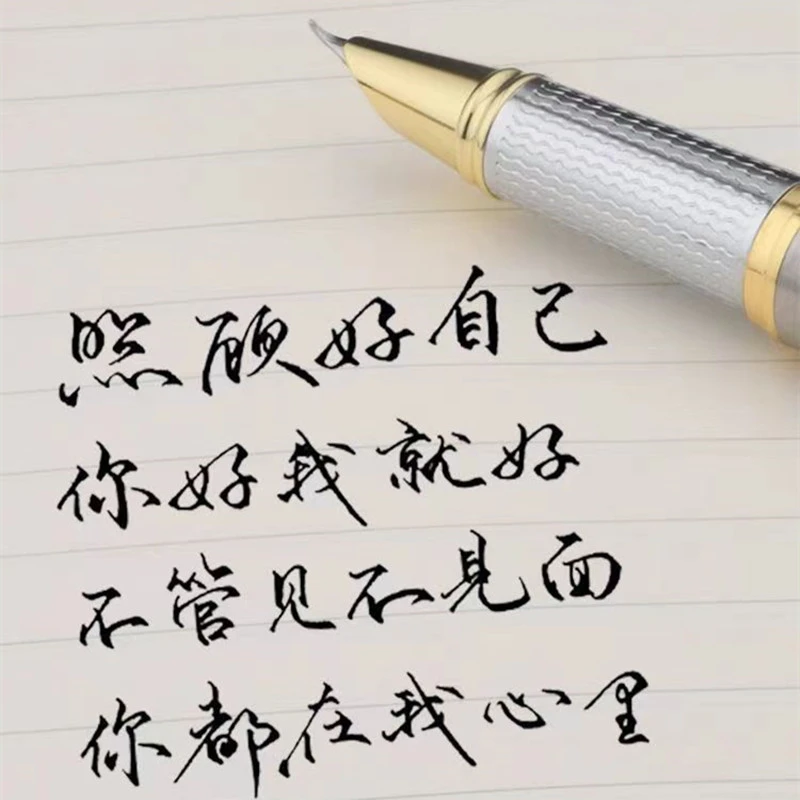 照顾好自己
你好我就好
不管见不见面
你都在我心里